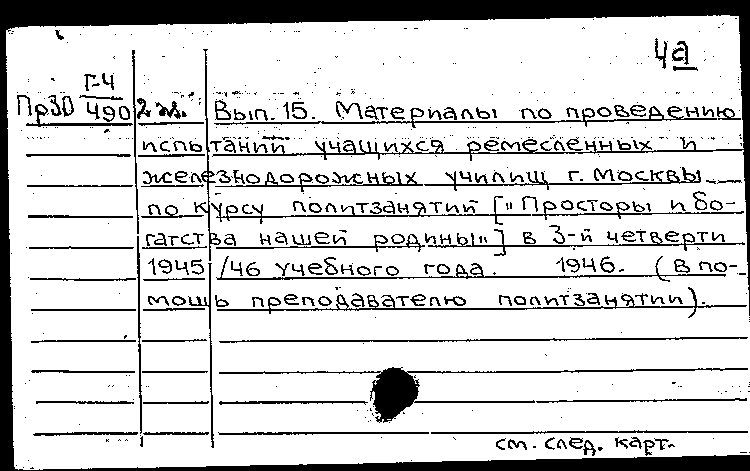 4а
Г-4
ПрЗО 490 2 эк. Вып. 15. Материалы по проведению
испытаний учащихся ремесленных и
железнодорожных училищ г. Москвы
по курсу политзанятий [„Просторы и бо-
гатства нашей родины"] в 3-й четверти
1945/46 учебного года. 1946. (В по-
мощь преподавателю политзанятий).
см. след. карт.